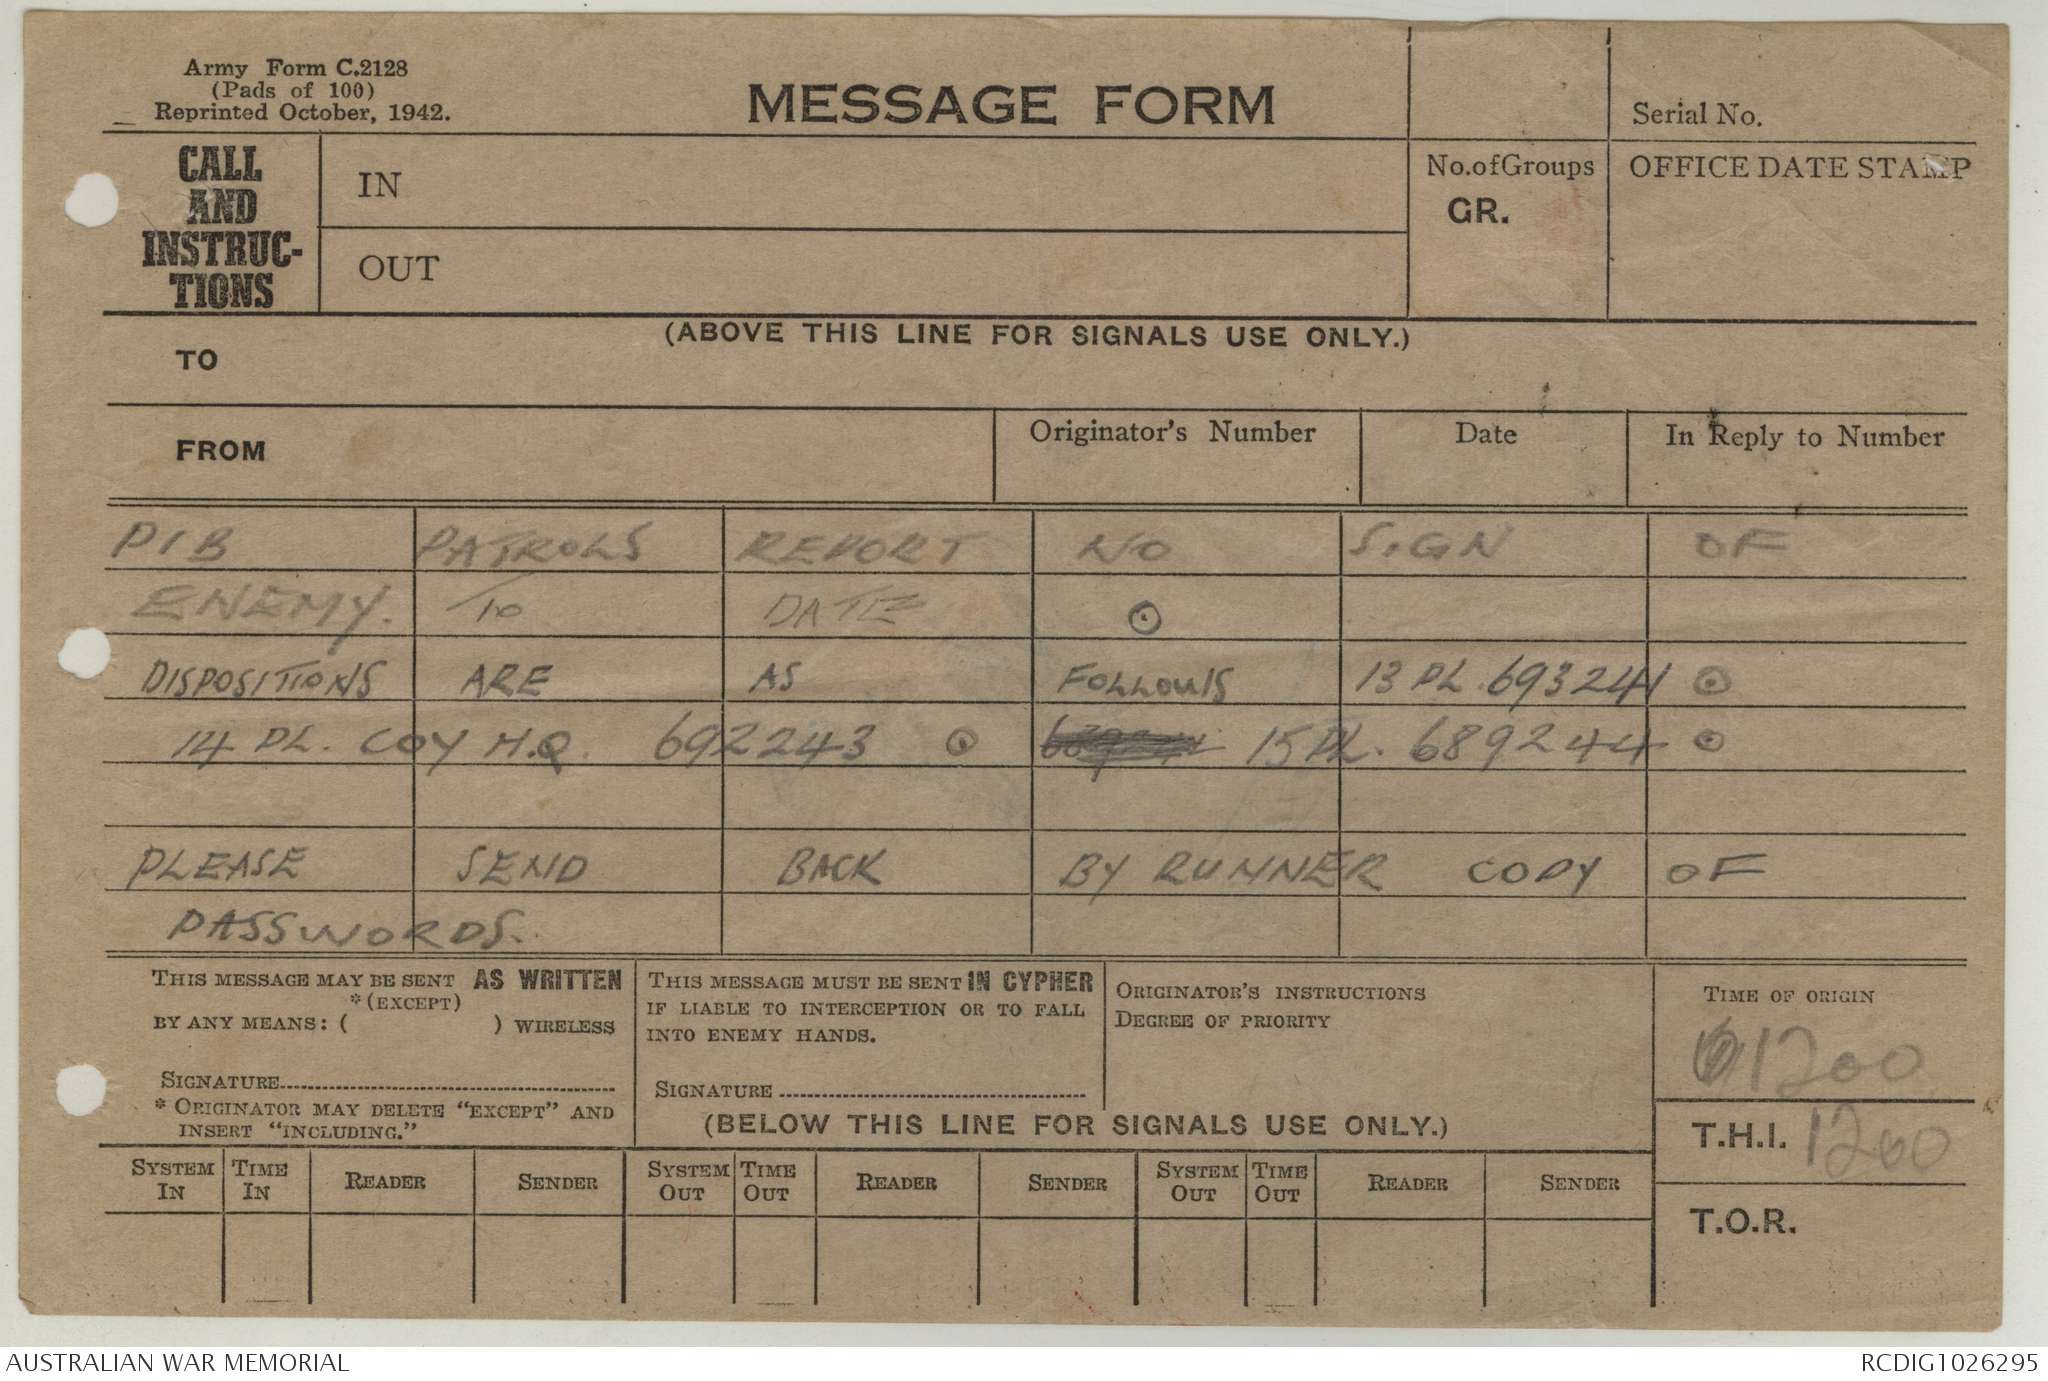 Army Form C.2128
(Pads of 100)
Reprinted October, 1942.
MESSAGE FORM
Serial No.
CALL AND INSTRUC-TIONS
IN
OUT
No.ofGroups
GR.
OFFICE DATE STAMP
(ABOVE THIS LINE FOR SIGNALS USE ONLY.)
TO
FROM
Originator's Number
Date
In Reply to Number
PIB PATROLS REPORT NO SIGN OF
ENEMY. TO DATE ⊙
DISPOSITIONS ARE AS FOLLOWS 13 PL. 693241 ⊙
14 PL. COY H.Q. 692243 ⊙ 15 PL. 689244 ⊙
PLEASE SEND BACK BY RUNNER COPY OF
PASSWORDS.
THIS MESSAGE MAY BE SENT AS WRITTEN
*(EXCEPT)
BY ANY MEANS: ( ) WIRELESS
SIGNATURE
* ORIGINATOR MAY DELETE "EXCEPT" AND
INSERT "INCLUDING."
THIS MESSAGE MUST BE SENT IN CYPHER
IF LIABLE TO INTERCEPTION OR TO FALL
INTO ENEMY HANDS.
SIGNATURE
ORIGINATOR'S INSTRUCTIONS
DEGREE OF PRIORITY
TIME OF ORIGIN
1200
(BELOW THIS LINE FOR SIGNALS USE ONLY.)
T.H.I. 1200
T.O.R.
SYSTEM IN TIME IN READER SENDER SYSTEM OUT TIME OUT READER SENDER SYSTEM OUT TIME OUT READER SENDER
AUSTRALIAN WAR MEMORIAL
RCDIG1026295